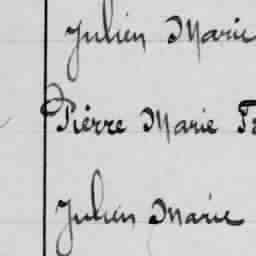 Julien Marie
Pierre Marie
Julien Marie